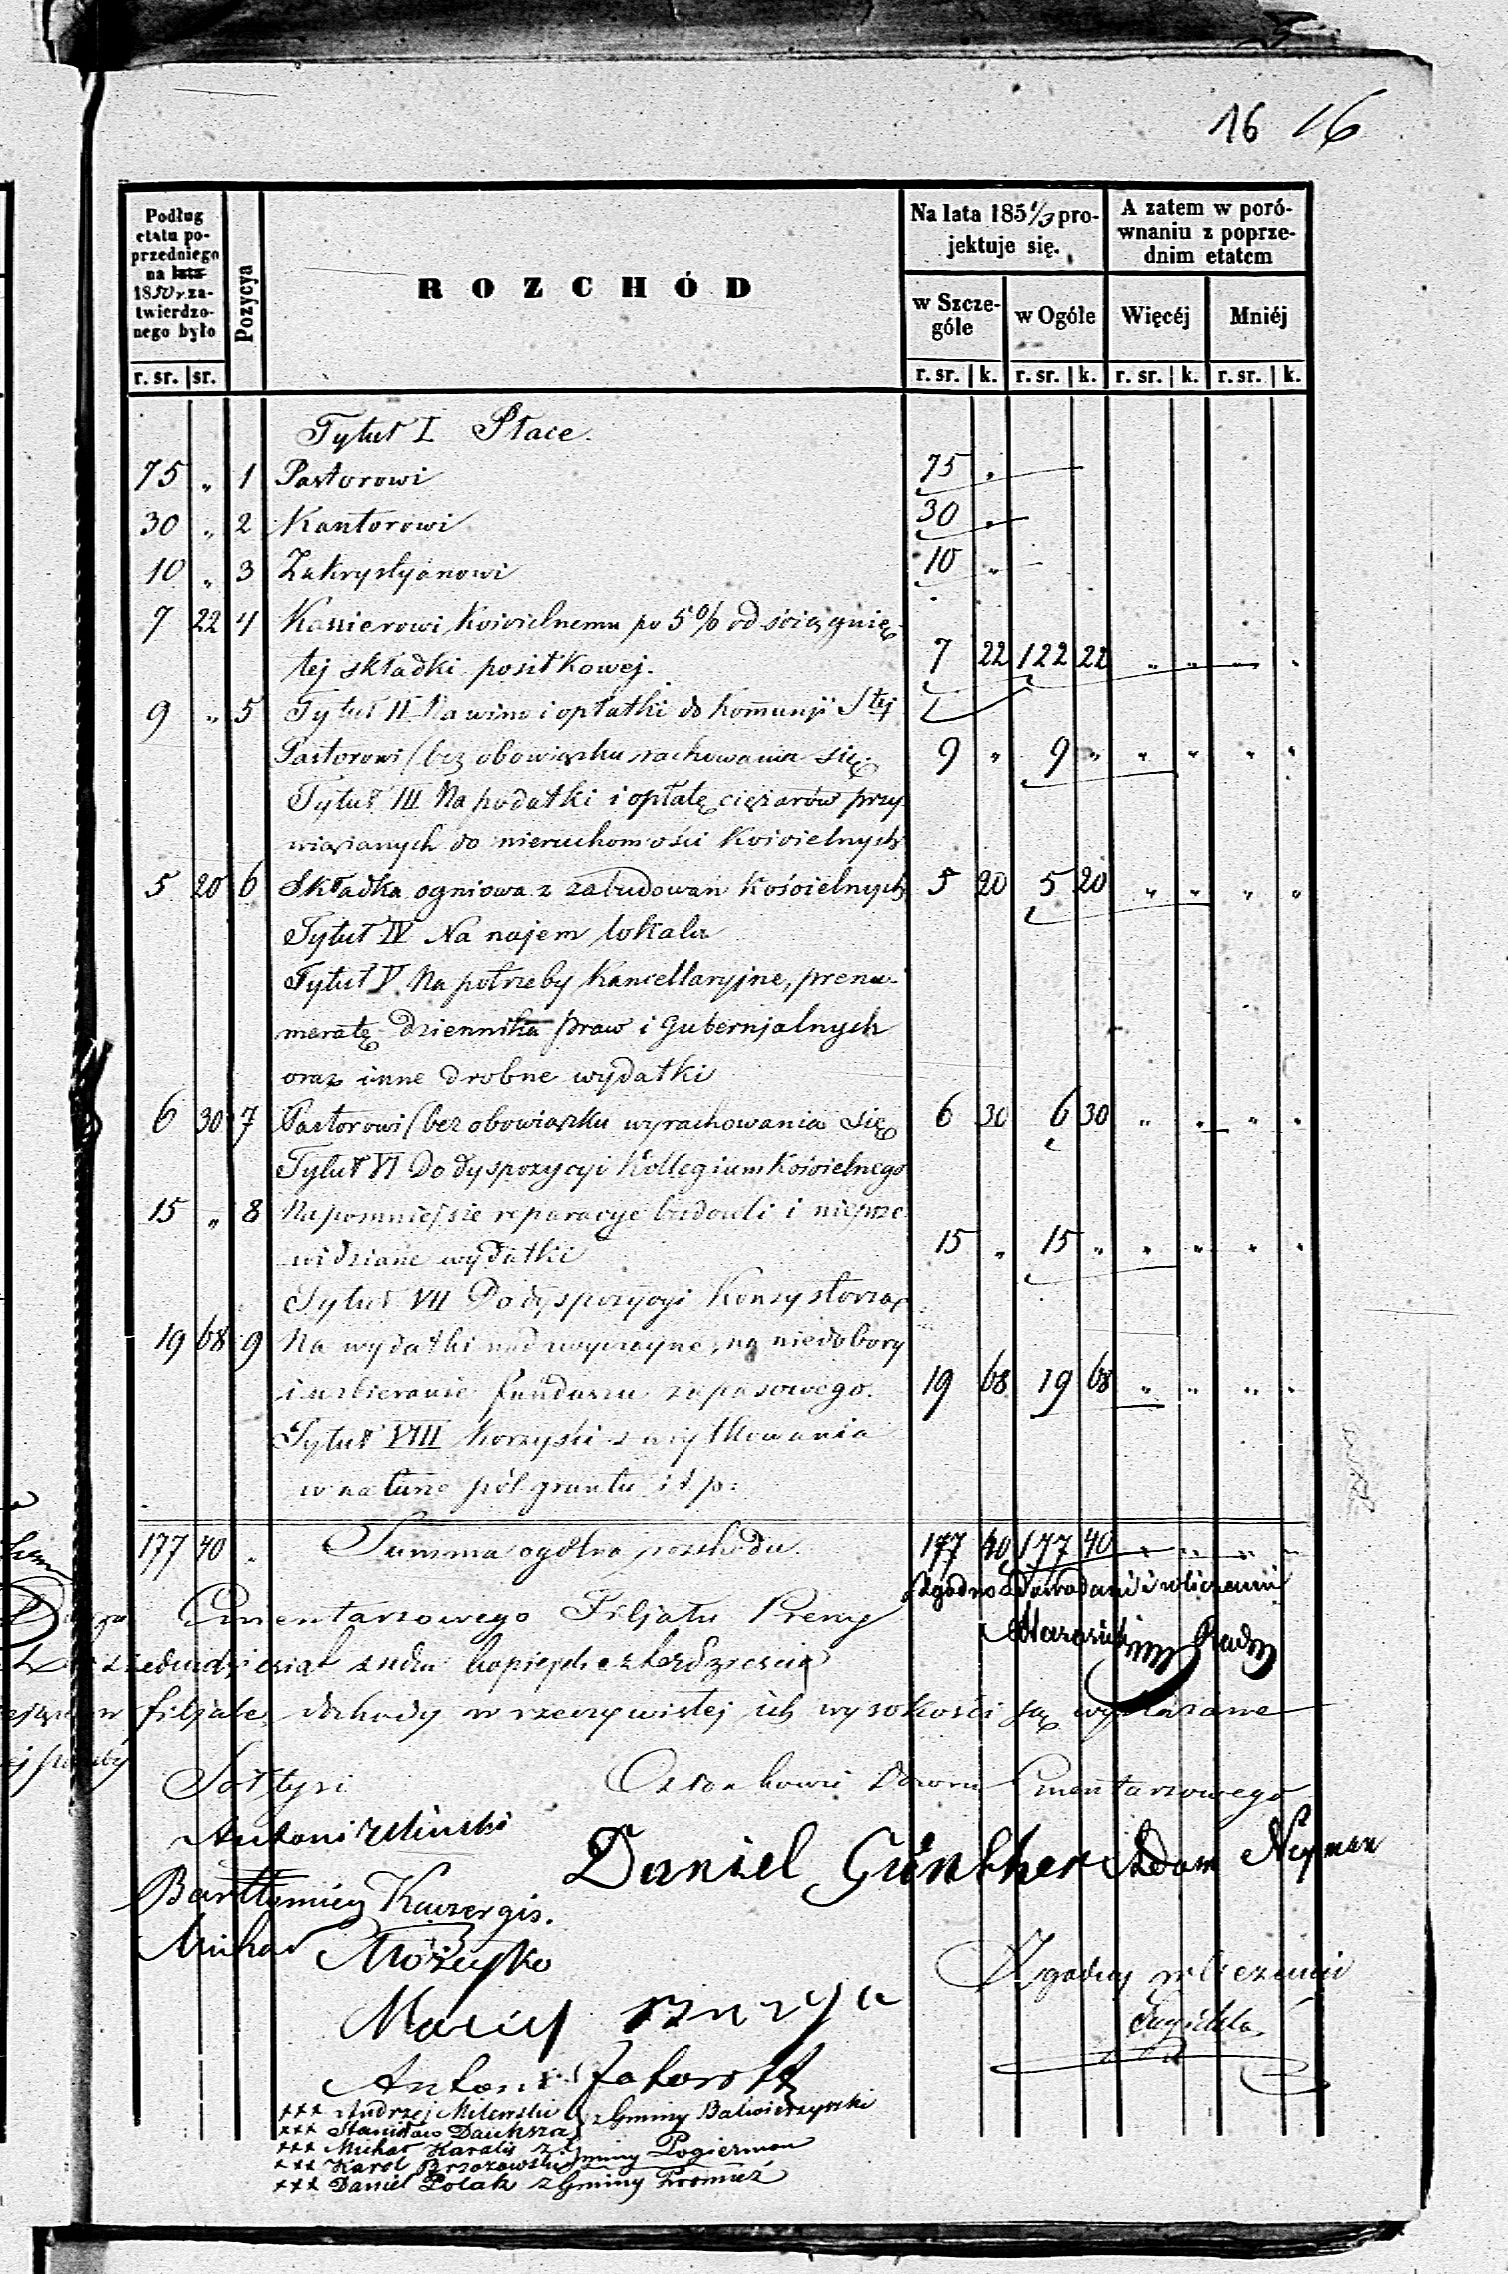 16 16
Podług etatu poprzedniego na lata 1850 r. zatwierdzonego było
Pozycya
ROZCHÓD
Na lata 1851/3 projektuje się.
A zatem w porównaniu z poprzednim etatem
w Szczególe
w Ogóle
Więcéj
Mniéj
r. sr. sr. r. sr. k. r. sr. k. r. sr. k. r. sr. k.
Tytuł I Płace.
75 „ 1 Pastorowi 75 „
30 „ 2 Kantorowi 30 „
10 „ 3 Zakrystyanowi 10 „
7 22 4 Kassierowi Kościelnemu po 5% od ściągnię-
tej składki posiłkowej. 7 22 122 22 „ „ „ „
9 „ 5 Tytuł II Na wino i opłatki do Kommunji Stej
Pastorowi (bez obowiązku rachowania się. 9 „ 9 „ „ „ „ „
Tytuł III Na podatki i opłatę ciężarów przy
wiązanych do nieruchomości Kościelnych
5 20 6 Składka ogniowa z zabudowań Kościelnych 5 20 5 20 „ „ „ „
Tytuł IV Na najem lokalu
Tytuł V Na potrzeby Kancellaryjne, prenu-
meratę dziennika praw i Gubernjalnych
oraz inne drobne wydatki
6 30 7 Pastorowi (bez obowiązku wyrachowania się 6 30 6 30 „ „ „ „
Tytuł VI Do dyspozycyi Kollegium Kościelnego
15 „ 8 Na pomniejsze reparacye budowli i nieprze
widziane wydatki 15 „ 15 „ „ „ „ „
Tytuł VII Do dyspozycyi Konsystorza
19 68 9 Na wydatki nadzwyczayne, na niedobory
i uzbieranie funduszu zapasowego. 19 68 19 68 „ „ „ „
Tytuł VIII Korzyski z użytkowania
w naturze pól gruntu i t p:
177 40 Summa ogólna rozchodu. 177 40 177 40 „ „ „ „
Zgodno z dowodami i w liczeniu
Cmentarzowego Filjału Preny
Radny
siedmdziesiąt siedm kopiejek czterdzieści
filjale dochody w rzeczywistej ich wysokości są wykazane
Sołtysi Członkowie Dozoru Cmentarzowego
Antoni Daniel Günther Adam Neyman
Bartłomiey Kauzergis.
Michał Możeyko
Zgodny w liczeniu
Maciej
Antoni
xxx Andrzej Milewski z Gminy Balwierzyszki
xxx Stanisław Dauksza
xxx Michał Karalis z Gminy Pogiermon
xxx Karol Brzozowski
xxx Daniel Polak z Gminy